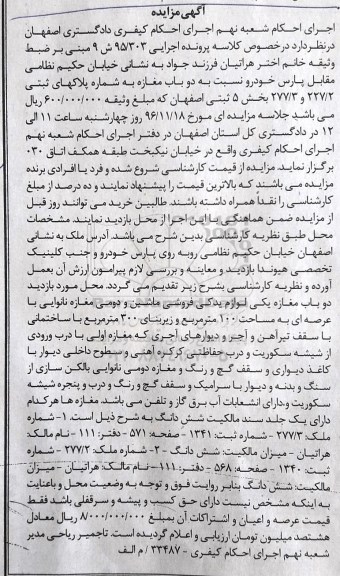 آگهی مزایده
اجرای احکام شعبه نهم اجرای احکام کیفری دادگستری اصفهان
در نظر دارد در خصوص کلاسه پرونده اجرایی ۹۵/۳۰۳ ش ۹ مبنی بر ضبط
وثیقه خانم اختر هراتیان فرزند جواد به نشانی خیابان حکیم نظامی
مقابل پارس خودرو نسبت به دو باب مغازه به شماره پلاکهای ثبتی
۲۲۷/۲ و ۲۷۷/۳ بخش ۵ ثبتی اصفهان که مبلغ وثیقه ۶۰۰/۰۰۰/۰۰۰ ریال
می باشد جلاسه مزایده ای مورخ ۹۶/۱۱/۱۸ روز چهارشنبه ساعت ۱۱ الی
۱۲ در دادگستری کل استان اصفهان در دفتر اجرای احکام شعبه نهم
اجرای احکام کیفری واقع در خیابان نیکبخت طبقه همکف اتاق ۰۳۰
برگزار نماید. مزایده از قیمت کارشناسی شروع شده و فرد یا افرادی برنده
مزایده می باشند که بالاترین قیمت را پیشنهاد نمایند و ده درصد از مبلغ
کارشناسی را نقداً همراه داشته باشند. طالبین خرید می توانند روز قبل
از مزایده ضمن هماهنگی با این اجرا از محل بازدید نمایند. مشخصات
محل طبق نظریه کارشناسی بدین شرح می باشد. آدرس ملک به نشانی
اصفهان خیابان حکیم نظامی روبه روی پارس خودرو و جنب کلینیک
تخصصی هیوندا بازدید و معاینه و بررسی لازم پیرامون ارزش آن بعمل
آورده و نظریه کارشناسی بشرح زیر تقدیم می گردد. محل مورد بازدید
دو باب مغازه یکی لوازم یدکی فروشی ماشین و دومی مغازه نانوایی با
عرصه ای به مساحت ۱۰۰ مترمربع و زیربنای ۳۰۰ مترمربع با ساختمانی
با سقف تیرآهن و آجر و دیوارهای آجری که مغازه اولی با درب ورودی
از شیشه سکوریت و درب حفاظتی کرکره آهنی و سطوح داخلی دیوار با
کاغذ دیواری و سقف گچ و رنگ و مغازه دومی نانوایی بالکن سازی از
سنگ و بدنه و دیوار با سرامیک و سقف گچ و رنگ و درب و پنجره شیشه
سکوریت و دارای انشعابات آب برق گاز و تلفن می باشد. مغازه ها هر کدام
دارای یک جلد سند مالکیت شش دانگ به شرح ذیل است. ۱- شماره
ملک: ۲۷۷/۳ - شماره ثبت: ۱۳۴۱ - صفحه: ۵۷۱ - دفتر: ۱۱۱ - نام مالک:
هراتیان - میزان مالکیت: شش دانگ - ۲- شماره ملک: ۲۷۷/۲ - شماره
ثبت: ۱۳۴۰ - صفحه: ۵۶۸ - دفتر: ۱۱۱- نام مالک: هراتیان - میزان
مالکیت: شش دانگ بنابر روایت فوق و توجه به وضعیت محل و باعنایت
به اینکه مشخص نیست دارای حق کسب و پیشه و سرقفلی باشد فقط
قیمت عرصه و اعیان و اشتراکات آن بمبلغ ۸/۰۰۰/۰۰۰/۰۰۰ ریال معادل
هشتصد میلیون تومان ارزیابی و اعلام گردیده است. تاجمیر ریاحی مدیر
شعبه نهم اجرای احکام کیفری - ۳۳۴۸۷ / م الف